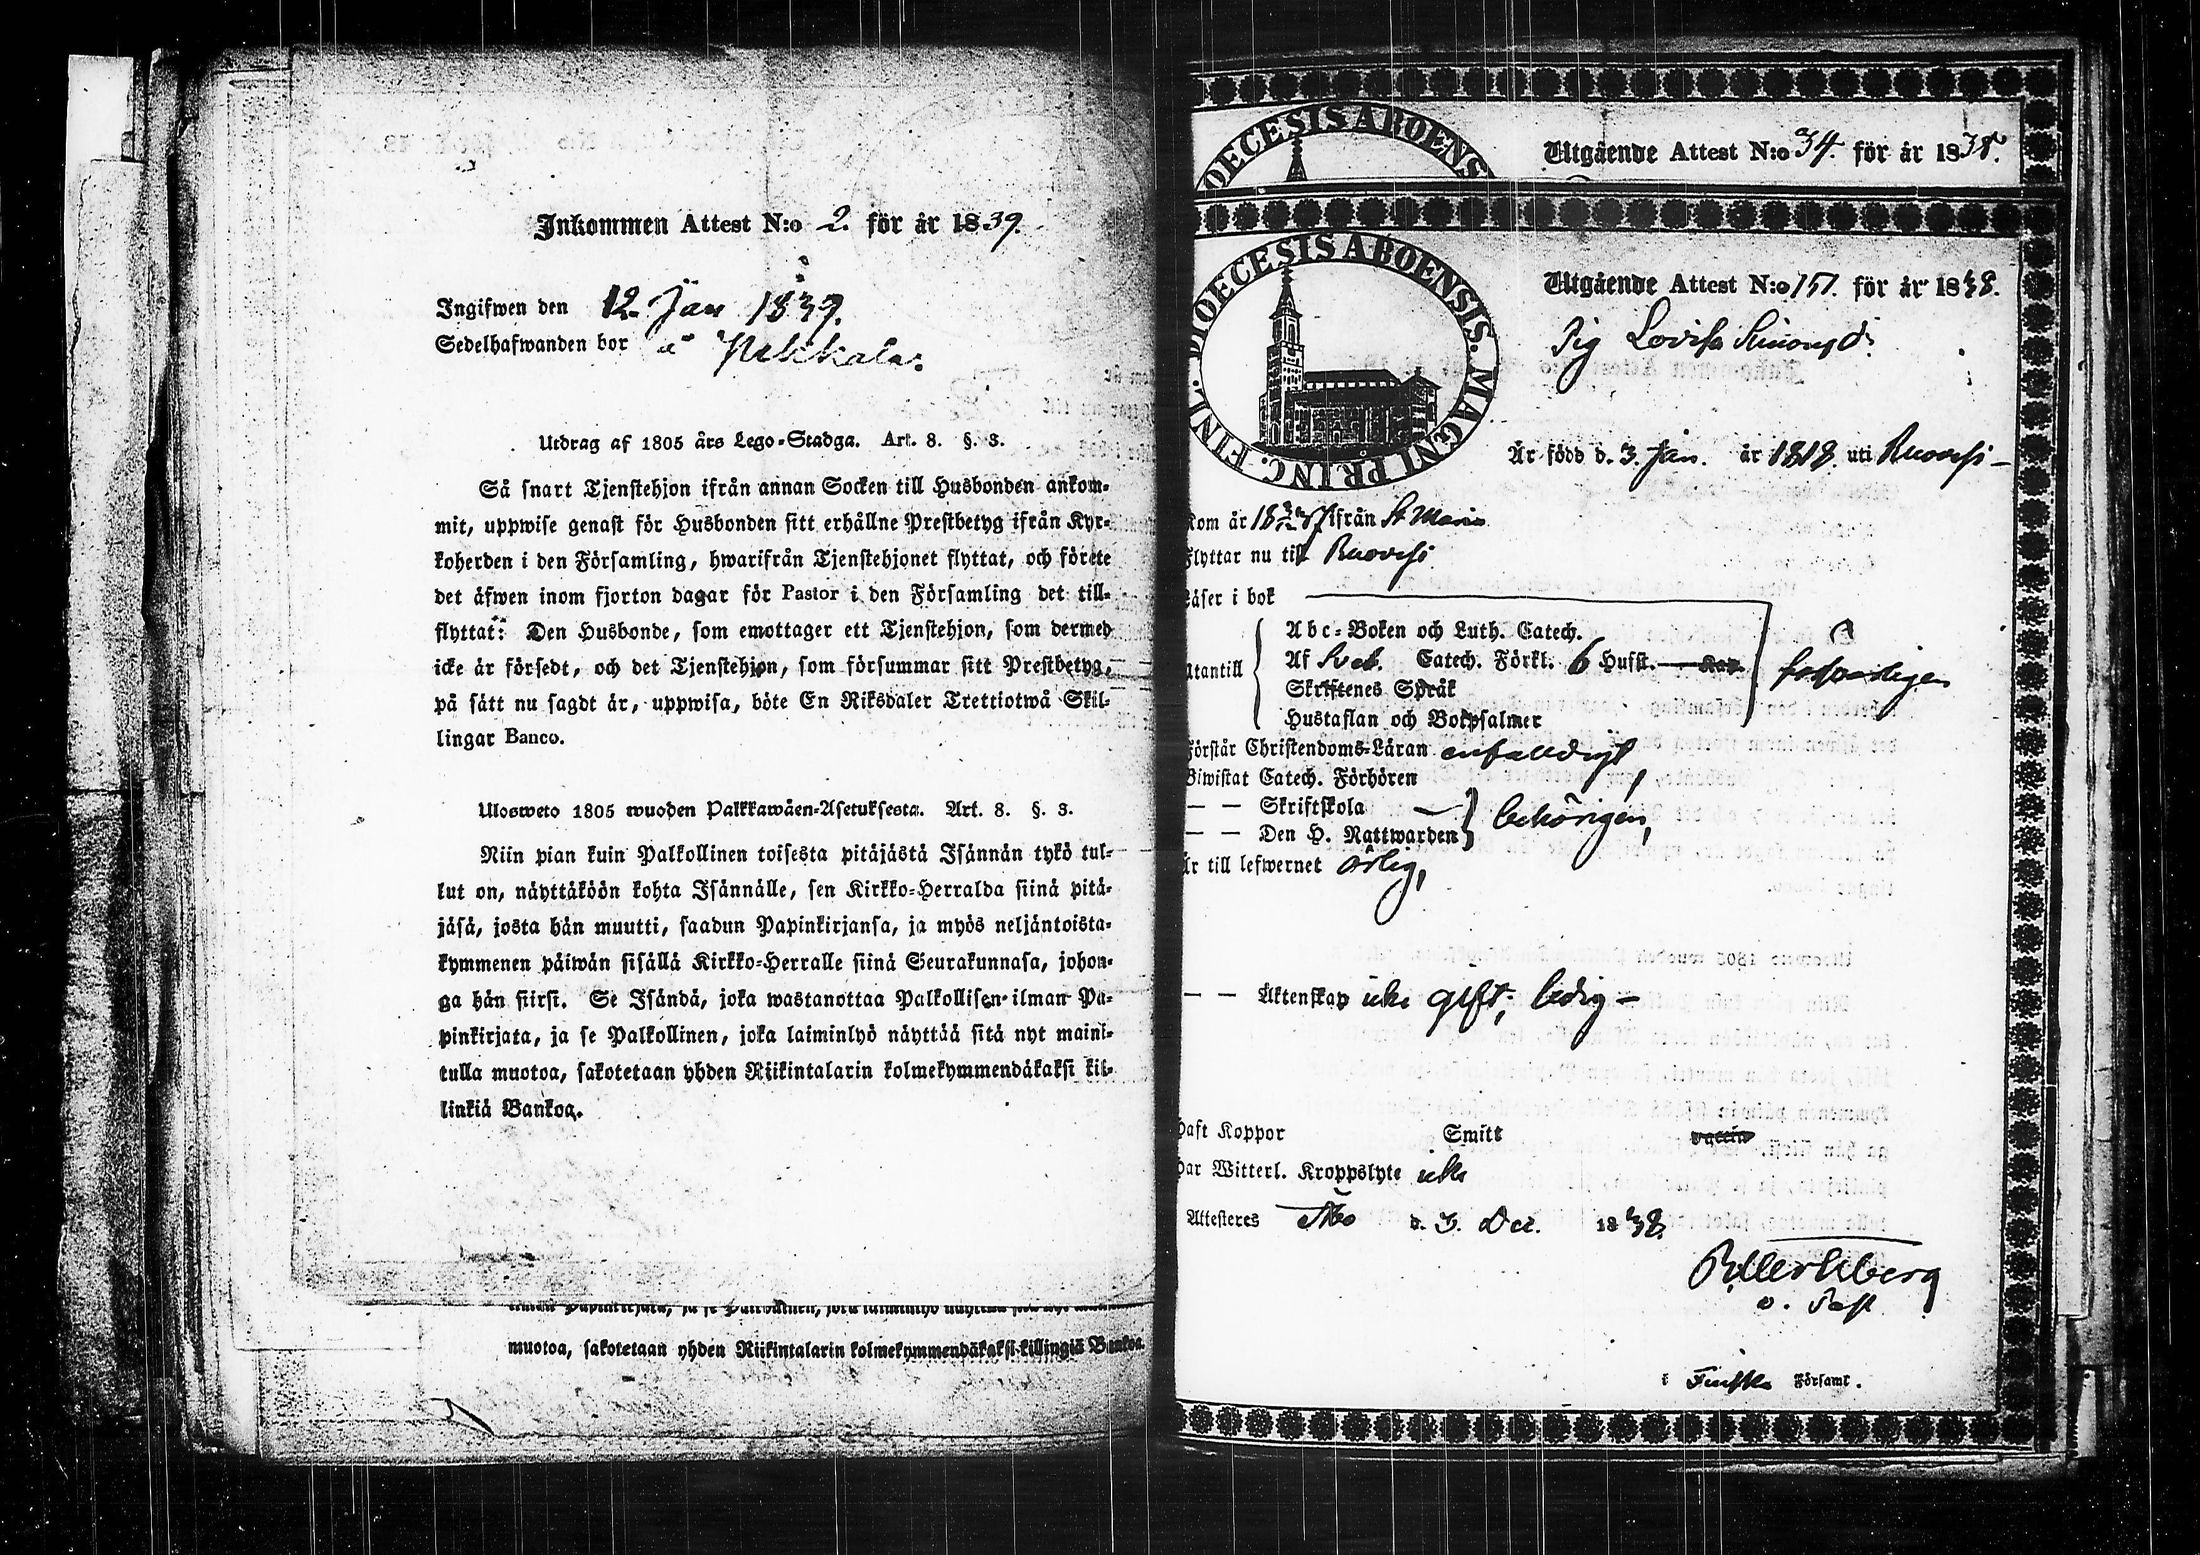 Inkommen Attest N:o 2. för år 1839.
Ingifwen den 12 Jan 1839.
Sedelhafwanden bor å Pekkala.
Utdrag af 1805 års Lego-Stadga. Art. 8. §. 3.
Så snart Tjenstehjon ifrån annan Socken till Husbonden ankom-
mit, uppwise genast för Husbonden sitt erhållne Prestbetyg ifrån Kyr-
koherden i den Församling, hwarifrån Tjenstehjonet flyttat, och förete
det äfwen inom fjorton dagar för Pastor i den Församling det till-
flyttat: Den Husbonde, som emottager ett Tjenstehjon, som dermed
icke är försedt, och det Tjenstehjon, som försummar sitt Prestbetyg,
på sätt nu sagdt är, uppwisa, böte En Riksdaler Trettiotwå Skil-
lingar Banco.
Ulosweto 1805 wuoden Palkkawäen-Asetuksesta. Art. 8. §. 3.
Niin pian kuin Palkollinen toisesta pitäjästä Isännän tykö tul-
lut on, näyttäköön kohta Isännälle, sen Kirkko-Herralda siinä pitä-
jäsä, josta hän muutti, saadun Papinkirjansa, ja myös neljäntoista-
kymmenen päiwän sisällä Kirkko-Herralle siinä Seurakunnasa, johon-
ga hän siirsi. Se Isändä, joka wastanottaa Palkollisen ilman Pa-
pinkirjata, ja se Palkollinen, joka laiminlyö näyttää sitä nyt maini-
tulla muotoa, sakotetaan yhden Riikintalarin kolmekymmendäkaksi kil-
linkiä Bankoa.
muotoa, sakotetaan yhden Riikintalarin kolmekymmendäkaksi killingiä Bankoa
DIOECESIS ABOENS
Utgående Attest N:o 34. för år 1838.
DIOECESIS ABOENSIS. MAGNI PRINC. FINL.
Utgående Attest N:o 151. för år 1838.
Pig Lovisa Simonsd:
Är född d. 3. Jan. år 1818. uti Ruovesi
Kom år 18 ifrån St Marie
Flyttar nu till Ruovesi
Läser i bok
Abc-Boken och Luth. Catech.
Utantill Af Sveb. Catech. Förkl. 6 Husst. Kap.
Skriftenes Språk
Hustaflan och Botpsalmer
Förstår Christendoms-Läran enfaldigt,
Biwistat Catech. Förhören
— — Skriftskola
— — Den H. Nattwarden behörigen,
Är till lefwernet ärlig,
— — Äktenskap icke gift; ledig —
Haft Koppor Smitt vaccin
Har Witterl. Kroppslyte icke
Attesteres Åbo d. 3. Dec. 1838.
v. Past
i Finska Församl.